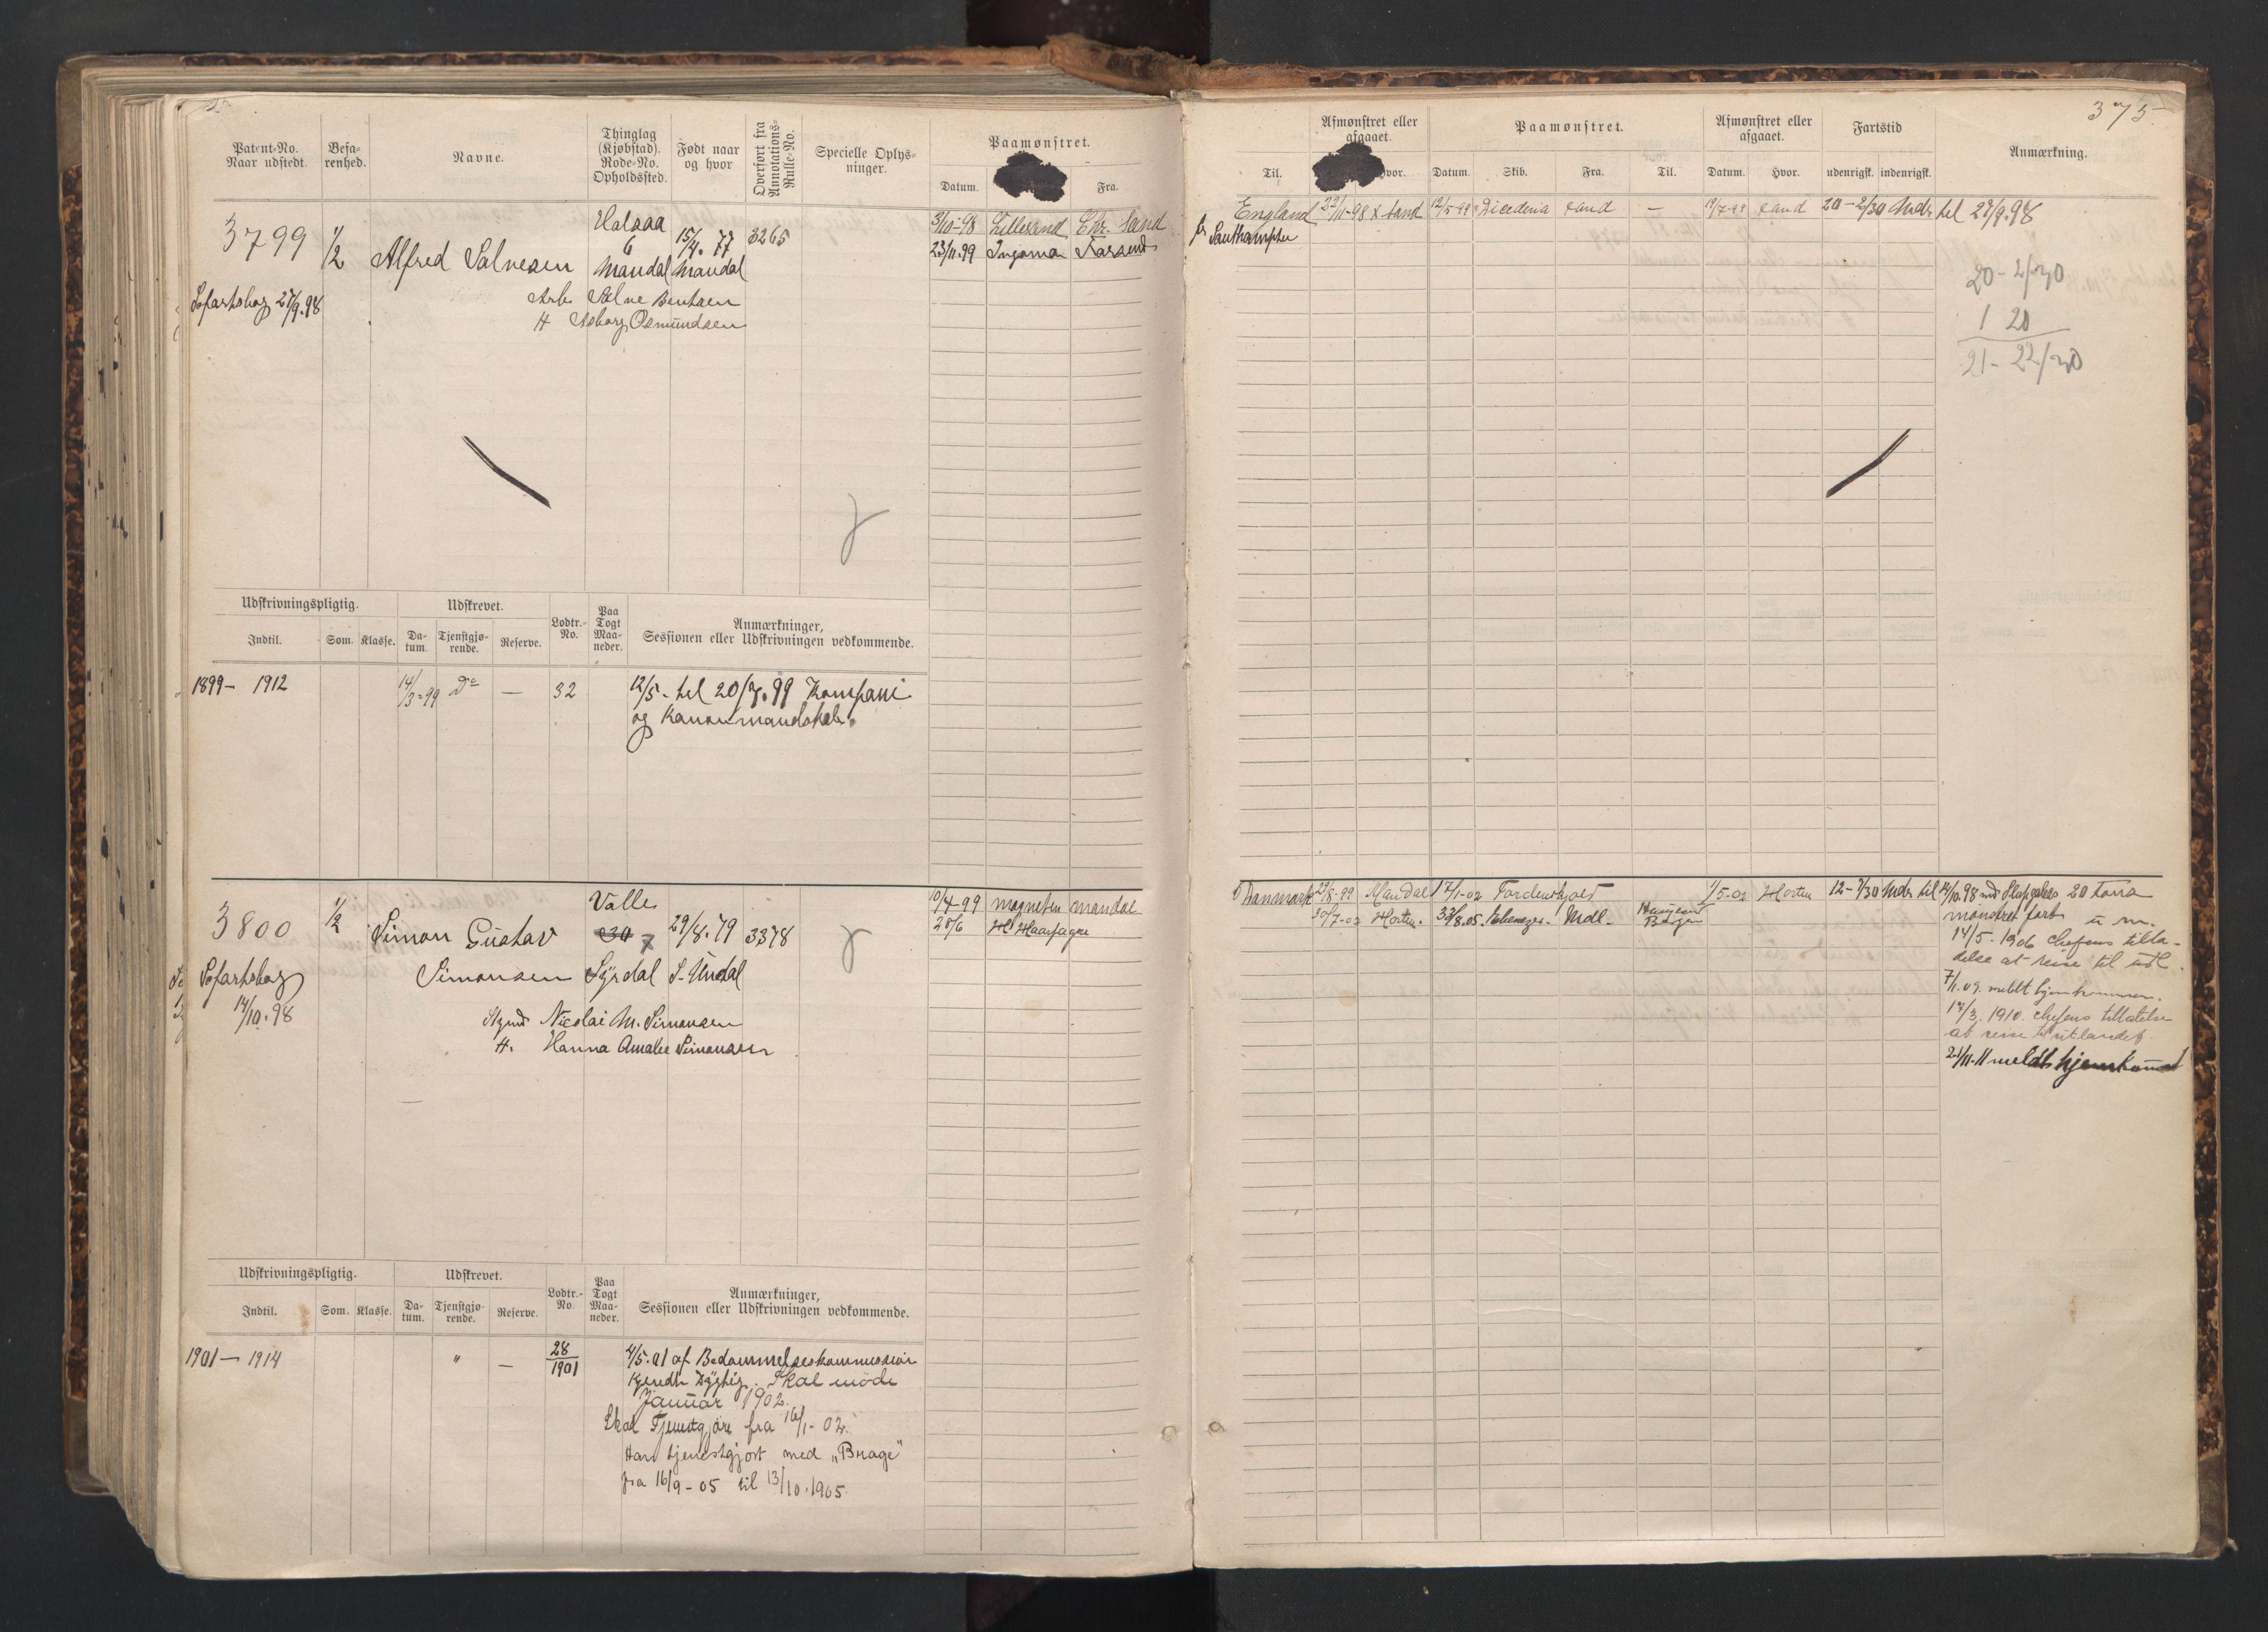 375.
Patent-No.
Naar udstedt.
Befa-
renhed.
Navne.
Thinglag
(Kjøbstad).
Rode-No.
Opholdssted.
Født naar
og hvor
Overført fra
Annotations-
Rulle-No.
Specielle Oplys-
ninger.
Paamønstret.
Datum.
Fra.
Til.
Afmønstret eller
afgaaet.
Hvor.
Paamønstret.
Datum.
Skib.
Fra.
Til.
Afmønstret eller
afgaaet.
Datum.
Hvor.
Fartstid
udenrigsk.
indenrigsk.
Anmærkning.
3799
1/2
Alfred Salvesen
Halsaa
6
Mandal
15/4. 77
Mandal
3265
Søfartsbog 27/9.98
Arb. Salve Bentsen
H Asborg Osmundsen
3/10-98 Lillesand Chr. Sand
23/11.99 Ingoma Farsund
England 22/11-98 X sand 12/5-99 Xsand — 19/7-99 Xsand 20-2/30 Mdr til 27/9.98
20-2/30
1 20
21-22/30
Udskrivningspligtig.
Udskrevet.
Lodtr.-
No.
Paa
Togt
Maa-
neder.
Anmærkninger,
Sessionen eller Udskrivningen vedkommende.
Indtil.
Som.
Klasse.
Da-
tum.
Tjenstgjø-
rende.
Reserve.
1899- 1912
14/3-99 Do — 32
12/5- til 20/7.99 Kompani
og Kanonmandskab.
3800
1/2
Simon Gustav
Simonsen
Valle
30 7
Syrdal
29/8.79
S. Undal
3378
Søfartsbog
14/10.98
Nicolai M. Simonsen
H. Hanna Amalie Simonsen
10/4-99 Magneten Mandal
28/6 Haarfagre
Danmark 29/8-99 Mandal 17/1-02 Tordenskjold 1/5-02 Horten 12-7/30 Mdr til 14/10.98
30/7-02 Horten. Ebenezer. Mdl. Bergen
20 Tons
mønstret fart
14/5.1906 Chefens tilla-
delse at reise til udl.
7/1.09. meldt hjemkommen.
1910. Chefens tilladelse
at reise til utlandet.
meldt hjemkommet
Udskrivningspligtig.
Udskrevet.
Lodtr.-
No.
Paa
Togt
Maa-
neder.
Anmærkninger,
Sessionen eller Udskrivningen vedkommende.
Indtil.
Som.
Klasse.
Da-
tum.
Tjenstgjø-
rende.
Reserve.
1901 - 1914
" — 28/1901
4/5.01 af Bedømmelseskommission
kjendt dygtig. Skal møde
Januar 1902.
Skal Tjenstgjøre fra 16/1-02.
Har tjenestgjort med „Brage"
fra 16/9-05 til 13/10.1905.